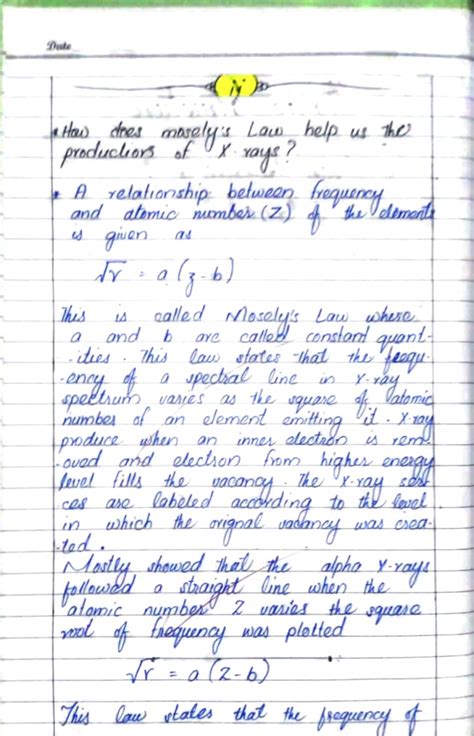 Date
N
How does mosely's Law help us the
productions of X-rays?
A relationship between frequency
and atomic number (Z) of the elements
is given as
√r = a (z-b)
This is called Mosely's Law where
a and b are called constant quant-
-ities. This law states that the frequ-
-ency of a spectral line in X-ray
spectrum varies as the square of atomic
number of an element emitting it. X-ray
produce when an inner electron is rem
oved and electron from higher energy
level fills the vacancy. The X-ray
ces are labeled according to the level
in which the orignal vacancy was crea-
-ted.
Mostly showed that the alpha X-rays
followed a straight line when the
atomic number Z varies the square
root of frequency was plotted
√r = a (Z-b)
This law states that the frequency of